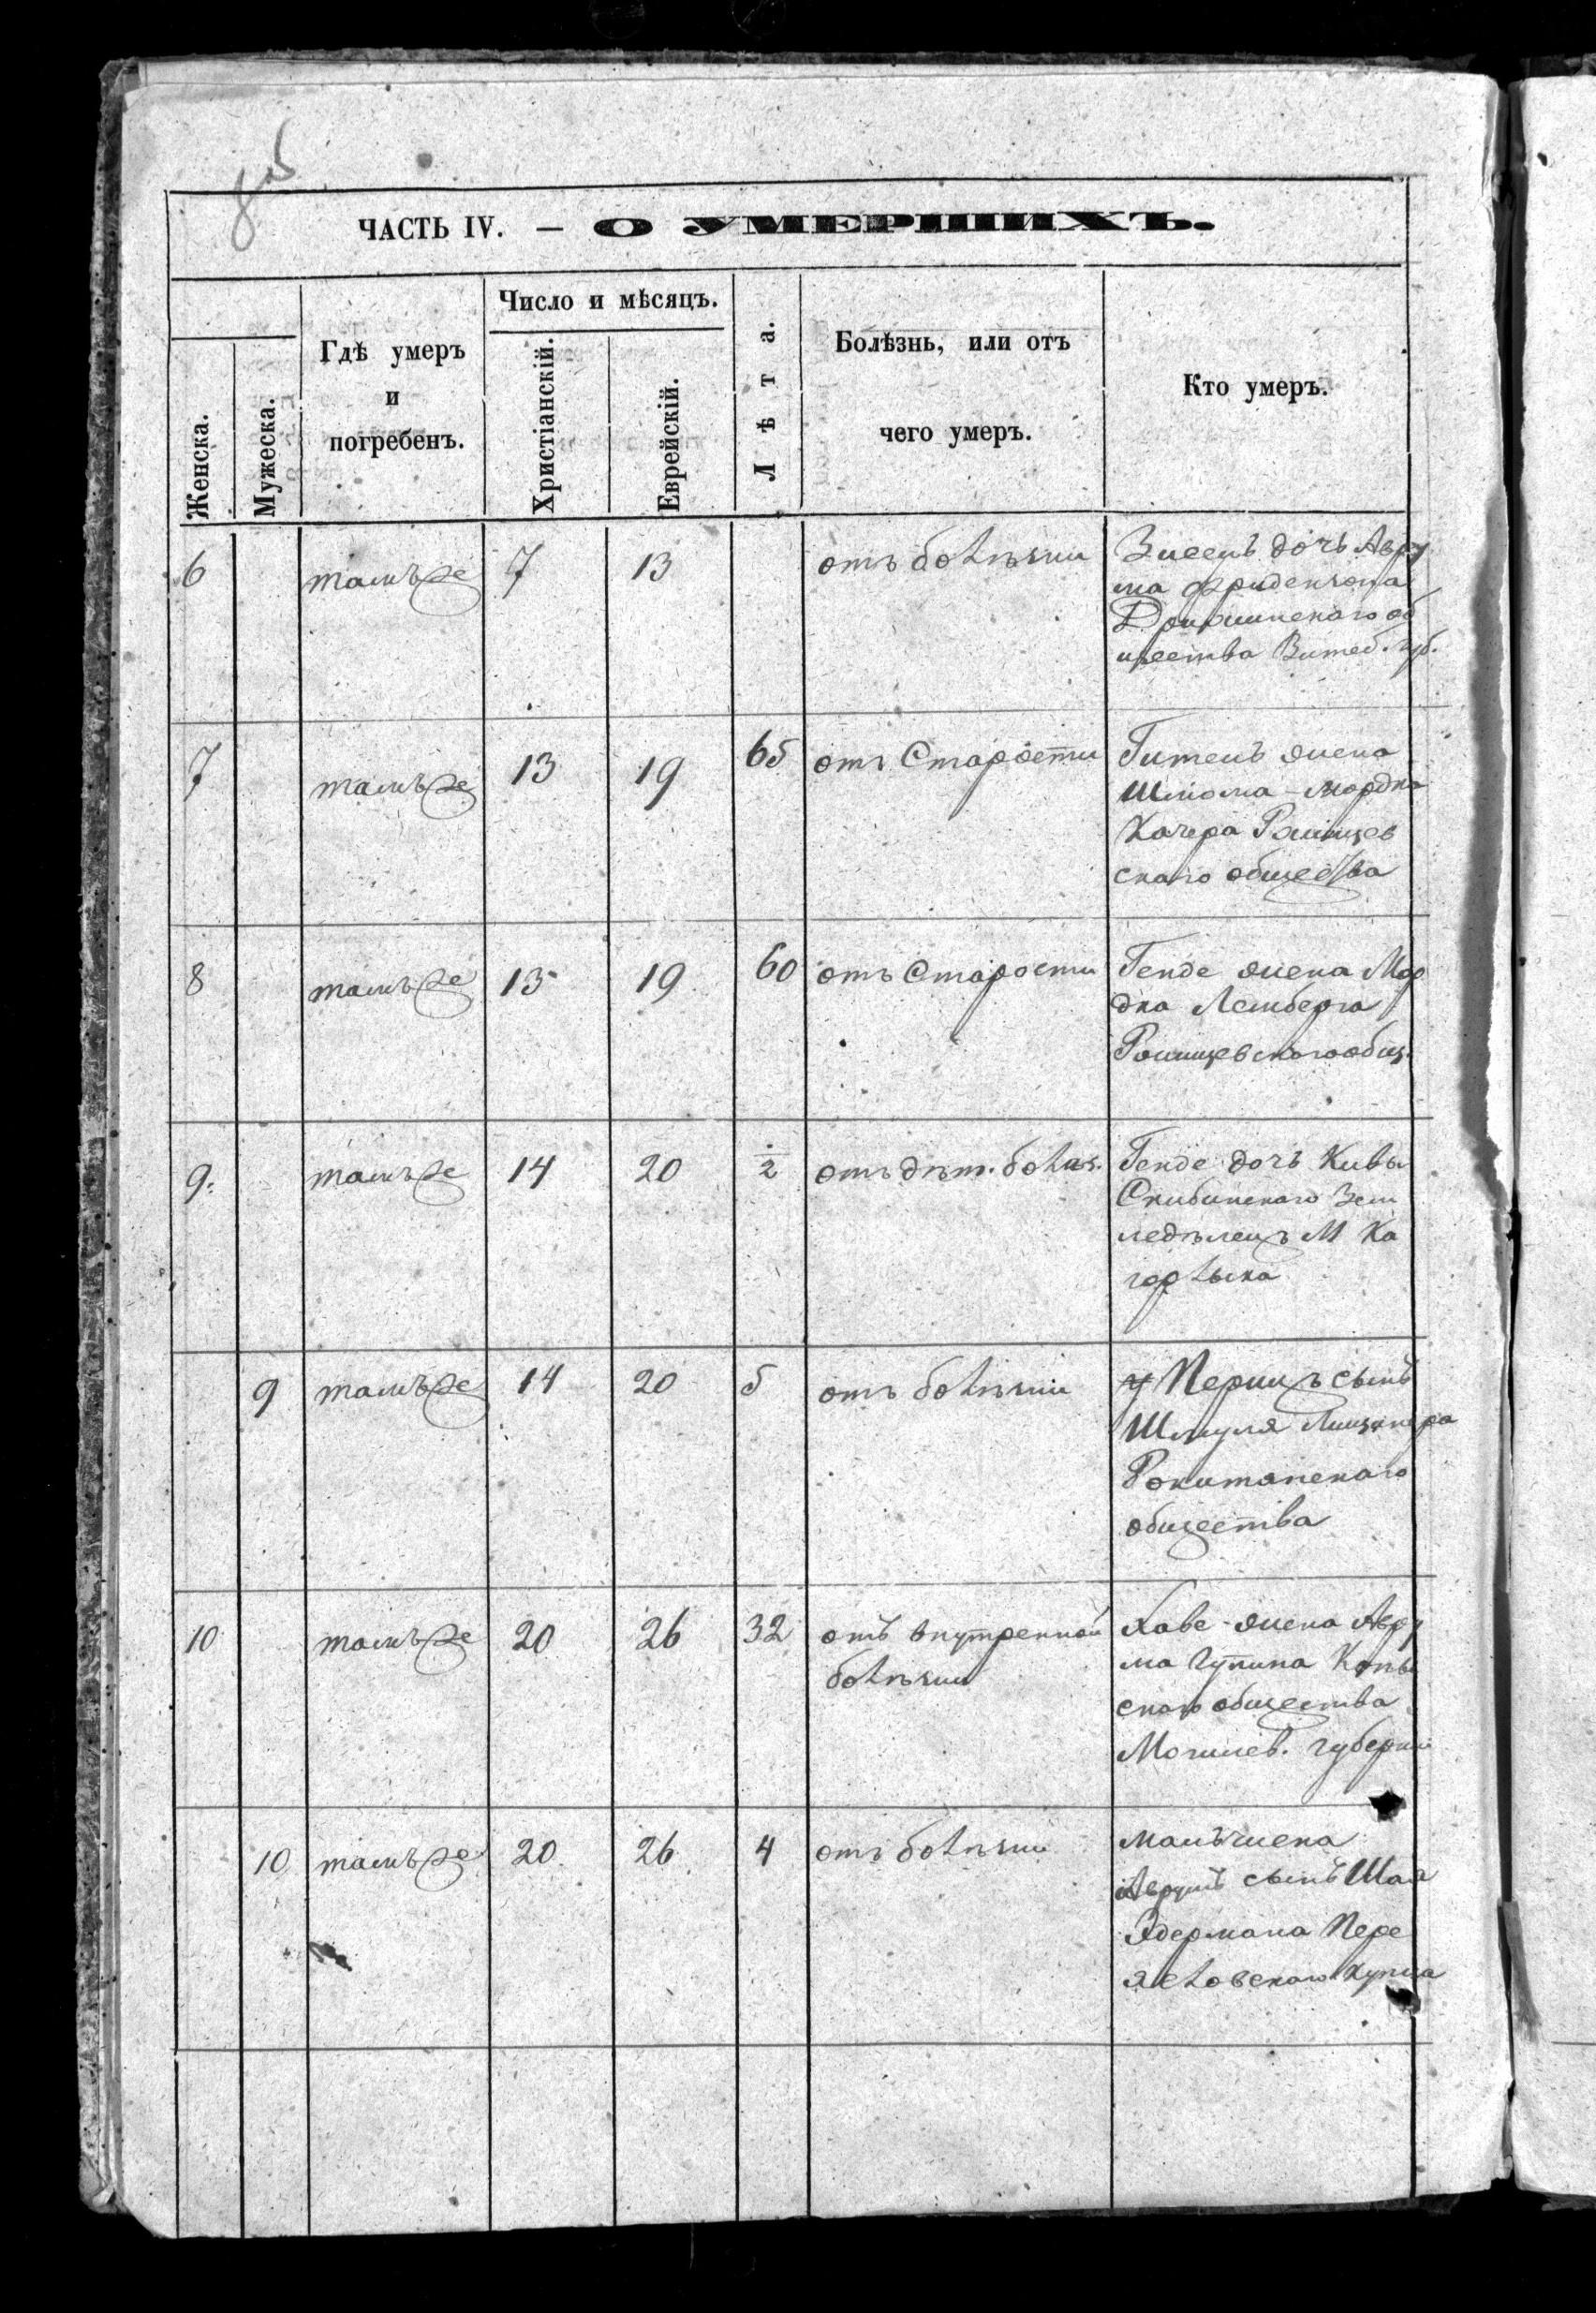 ЧАСТЬ IV. — О УМЕРШИХЪ.
Женска.
Мужеска.
Гдѣ умеръ
и
погребенъ.
Число и мѣсяцъ.
Христіанскій.
Еврейскій.
Лѣта.
Болѣзнь, или отъ
чего умеръ.
Кто умеръ.
6 тамъже 7 13 отъ болѣзни
дочъ Авру
ма Фридензона
об
щества Витеб. губ.
7 тамъже 13 19 65 отъ Старости
жена
Шлiома-Мордка
скаго общества
8 тамъже 13 19 60 отъ Старости Генде жена Мор
дка Лемберга
общ.
9. тамъже 14 20 1/2 отъ дѣт. болѣз. Генде дочъ Кивы
Скибинскаго Зем
ледѣлецъ М Ка
горлыка
9 тамъже 14 20 5 отъ болѣзни Перицъ сынъ
Шмуля
Рокитанскаго
общества
10 тамъже 20 26 32 отъ внутренной
болѣзни
Хаве-жена Авру
ма Гупина Копы
скаго общества
Могилев. губернии
10 тамъже 20 26 4 отъ болѣзни
Аврумъ сынъ Шая
Эдермана Пере
яславскаго купца